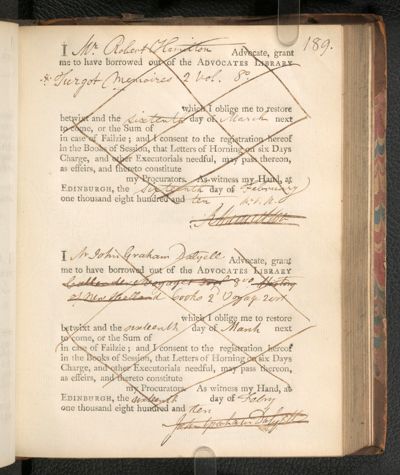 189.
I Mr. Robert Hamilton Advocate, grant
me to have borrowed out of the ADVOCATES LIBRARY
Turgot Memoires 2 vol. 8º
which I oblige me to restore
betwixt and the sixteenth day of March next
to come, or the Sum of
in case of Failzie; and I consent to the registration hereof
in the Books of Session, that Letters of Horning on six Days
Charge, and other Executorials needful, may pass thereon,
as effeirs, and thereto constitute
my Procurators. As witness my Hand, at
EDINBURGH, the sixteenth day of February
one thousand eight hundred and ten
I Mr John Graham Dalyell Advocate, grant
me to have borrowed out of the ADVOCATES LIBRARY
Callender Voyages 8vo History
of New Holland Cooks 2d Voyage 2 vol
which I oblige me to restore
betwixt and the sixteenth day of March next
to come, or the Sum of
in case of Failzie; and I consent to the registration hereof
in the Books of Session, that Letters of Horning on six Days
Charge, and other Executorials needful, may pass thereon,
as effeirs, and thereto constitute
my Procurators. As witness my Hand, at
EDINBURGH, the sixteenth day of Febry
one thousand eight hundred and ten
John Graham Dalyell